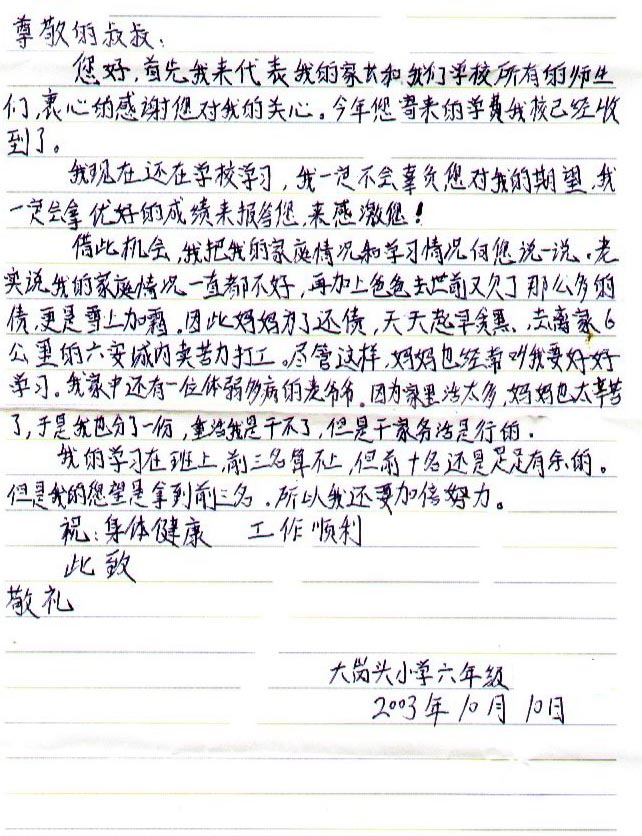 尊敬的叔叔：
您好，首先我来代表我的家长和我们学校所有的师生
们，衷心的感谢您对我的关心。今年您寄来的学费我校已经收
到了。
我现在还在学校学习，我一定不会辜负您对我的期望，我
一定会拿优好的成绩来报答您，来感激您！
借此机会，我把我的家庭情况和学习情况向您说一说。老
实说我的家庭情况一直都不好，再加上爸爸去世前又欠了那么多的
债，更是雪上加霜。因此妈妈为了还债，天天起早贪黑、去离家6
公里的六安城内卖苦力打工。尽管这样，妈妈也经常叫我要好好
学习。我家中还有一位体弱多病的老爷爷。因为家里活太多，妈妈也太辛苦
了，于是我也分了一份，重活我是干不了，但是干家务活是行的．
我的学习在班上，前三名算不上，但前十名还是足足有余的。
但是我的愿望是拿到前三名．所以我还要加倍努力。
祝：身体健康 工作顺利
此致
敬礼
大岗头小学六年级
2003年10月10日